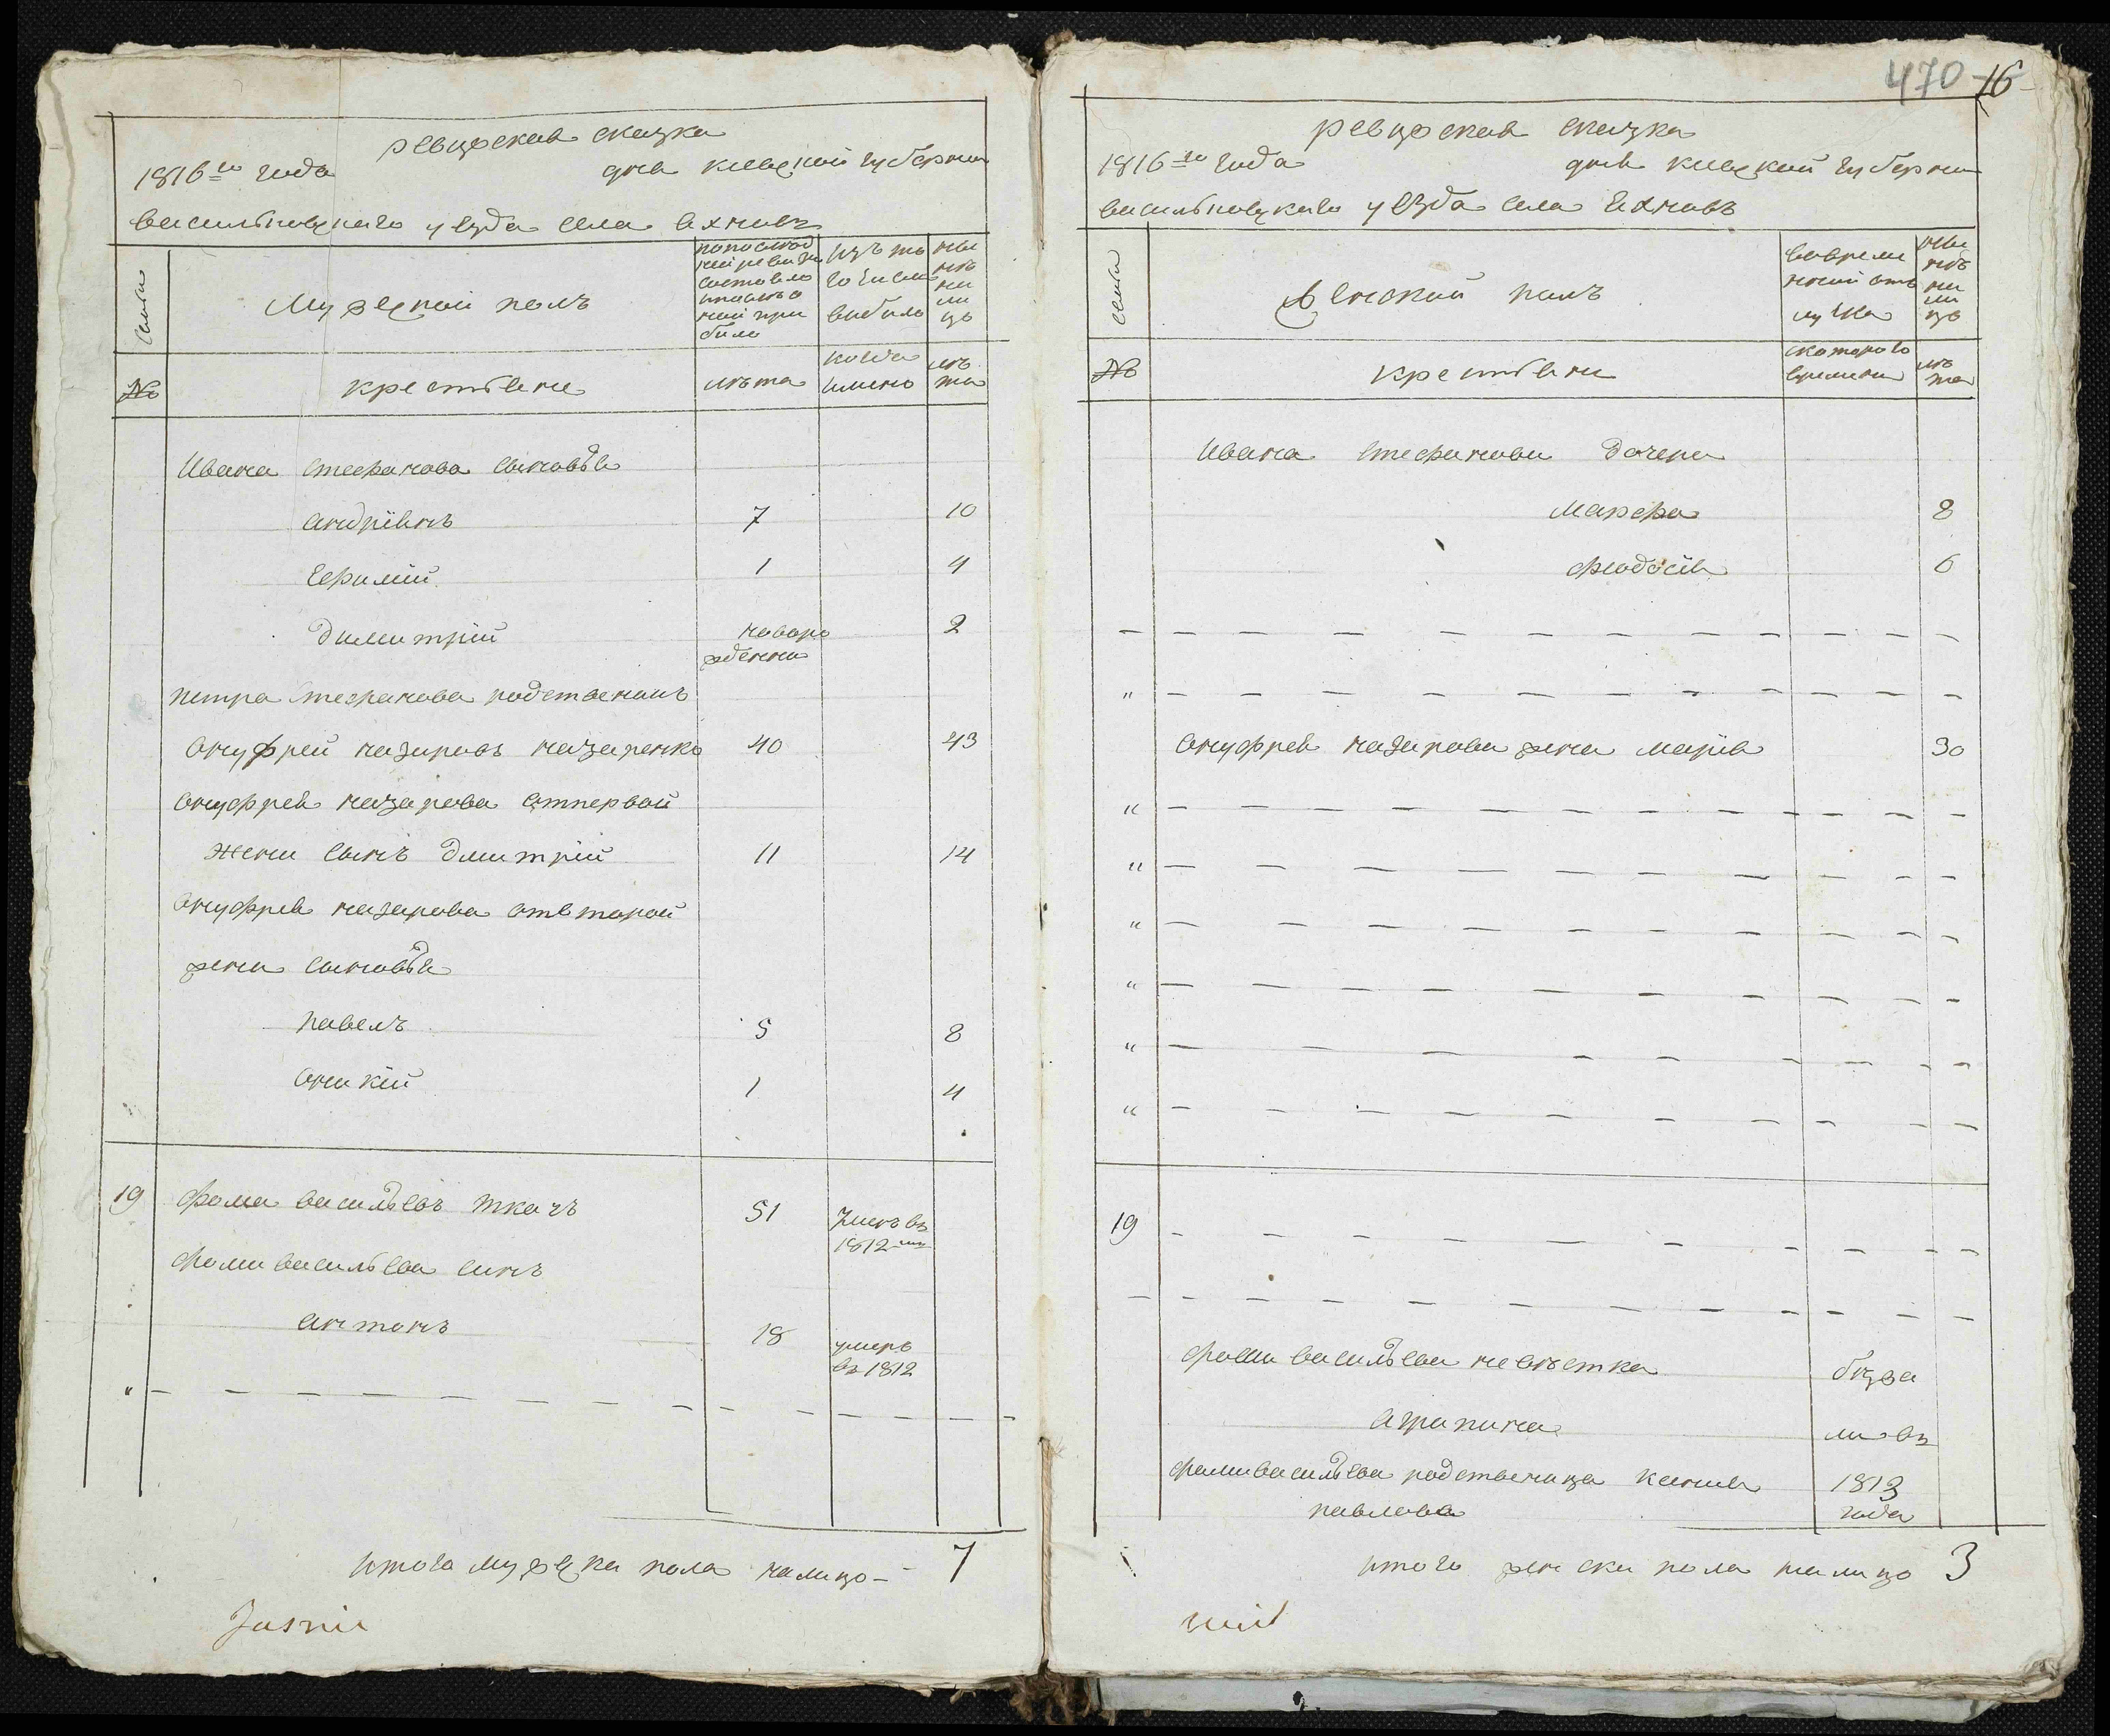 ревизская сказка
1816го года дня киевской губернии
васильковского уезда села ехновъ
семьи
Мужеской полъ
по последней ревизии состояло и после оной прибыло
изъ того числа выбыло
ныне на лицо
№
крестьяне
лѣта
когда именно
лѣта
Ивана стефанова сыновья
андріянъ 7 10
Ефимій 1 4
димитрій новорожденни 2
петра стефанова родственикъ
онуфрей назаровъ назаренко 40 43
онуфрея назарова отпервой
жени сынъ дмитрій 11 14
онуфрея назарова отвторой
жени сыновья
павелъ 5 8
оникій 1 4
19 фома васильевъ ткачъ 51 умеръ въ 1812мъ
фоми васильева синъ
антонъ 18 умеръ въ 1812
итого мужеска пола налицо 7
470 16
ревизская сказка
1816го года дня киевской губернии
васильковского уезда села Ехновъ
семьи
Женской полъ
вовременной отлучке
ныне на лицо
№
крестьяне
скоторого времени
лѣта
Ивана стефанова дочери
марфа 8
феодосія 6
онуфрея назарова жена марія 30
19
фоми васильева невѣстка
агрипина
фоми васильева родственица ксения
павлова
бежали въ 1813 года
итого женска пола налицо 3